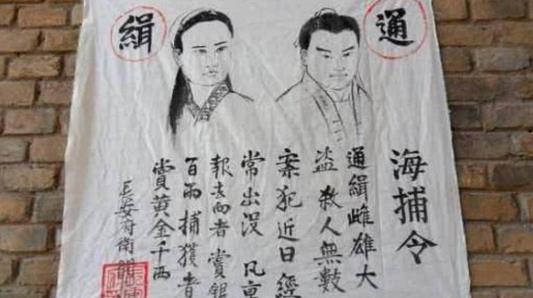 通緝
海捕令
通緝雌雄大
盜殺人無數
案犯近日經
常出没 凡
報去向者賞銀
百兩捕獲者
賞黃金千兩
長安府衙